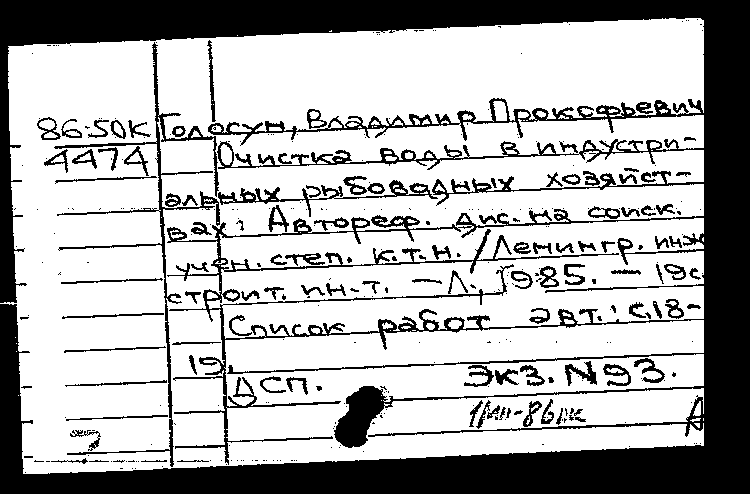 86-50К Голосун, Владимир Прокофьевич
4474 Очистка воды в индустри-
альных рыбоводных хозяйст-
вах: Автореф. дис. на соиск.
учен. степ. к.т.н. / Ленингр. инж
строит. ин-т. — Л., 1985. — 19с.
Список работ авт.: с.18-
19.
ДСП. Экз. N93.